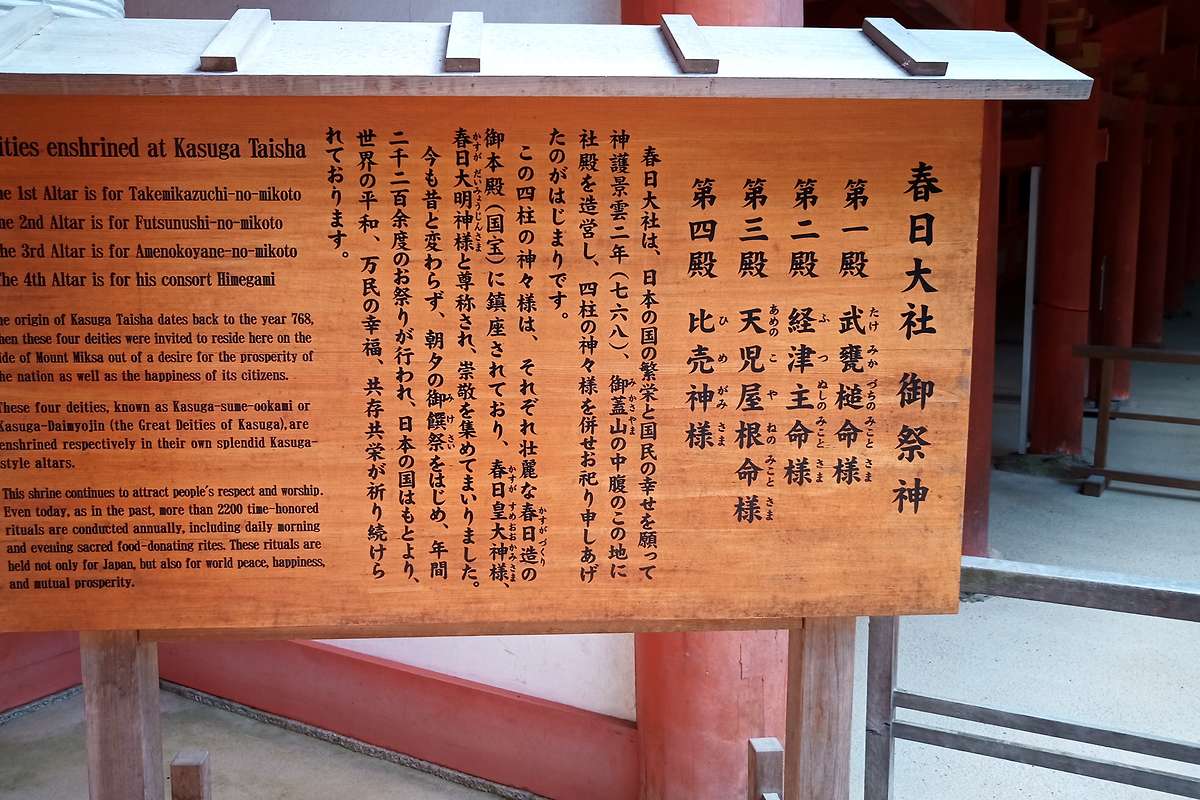 春日大社 御祭神
第一殿 武甕槌命様
たけ みか づちの みこと さま
第二殿 経津主命様
ふ つ ぬしの みこと さま
第三殿 天児屋根命様
あめの こ や ねの みこと さま
第四殿 比売神様
ひ め がみ さま
春日大社は、日本の国の繁栄と国民の幸せを願って
神護景雲二年（七六八）、御蓋山の中腹のこの地に
みかさやま
社殿を造営し、四柱の神々様を併せお祀り申しあげ
たのがはじまりです。
この四柱の神々様は、それぞれ壮麗な春日造の
かすがづくり
御本殿（国宝）に鎮座されており、春日皇大神様、
かすが すめ おおかみ さま
春日大明神様と尊称され、崇敬を集めてまいりました。
かすが だいみょうじん さま
今も昔と変わらず、朝夕の御饌祭をはじめ、年間
み け さい
二千二百余度のお祭りが行われ、日本の国はもとより、
世界の平和、万民の幸福、共存共栄が祈り続けら
れております。
ities enshrined at Kasuga Taisha
he 1st Altar is for Takemikazuchi-no-mikoto
he 2nd Altar is for Futsunushi-no-mikoto
he 3rd Altar is for Amenokoyane-no-mikoto
he 4th Altar is for his consort Himegami
he origin of Kasuga Taisha dates back to the year 768,
hen these four deities were invited to reside here on the
ide of Mount Miksa out of a desire for the prosperity of
he nation as well as the happiness of its citizens.
These four deities, known as Kasuga-sume-ookami or
Kasuga-Daimyojin (the Great Deities of Kasuga), are
enshrined respectively in their own splendid Kasuga-
style altars.
This shrine continues to attract people's respect and worship.
Even today, as in the past, more than 2200 time-honored
rituals are conducted annually, including daily morning
and evening sacred food-donating rites. These rituals are
held not only for Japan, but also for world peace, happiness,
and mutual prosperity.